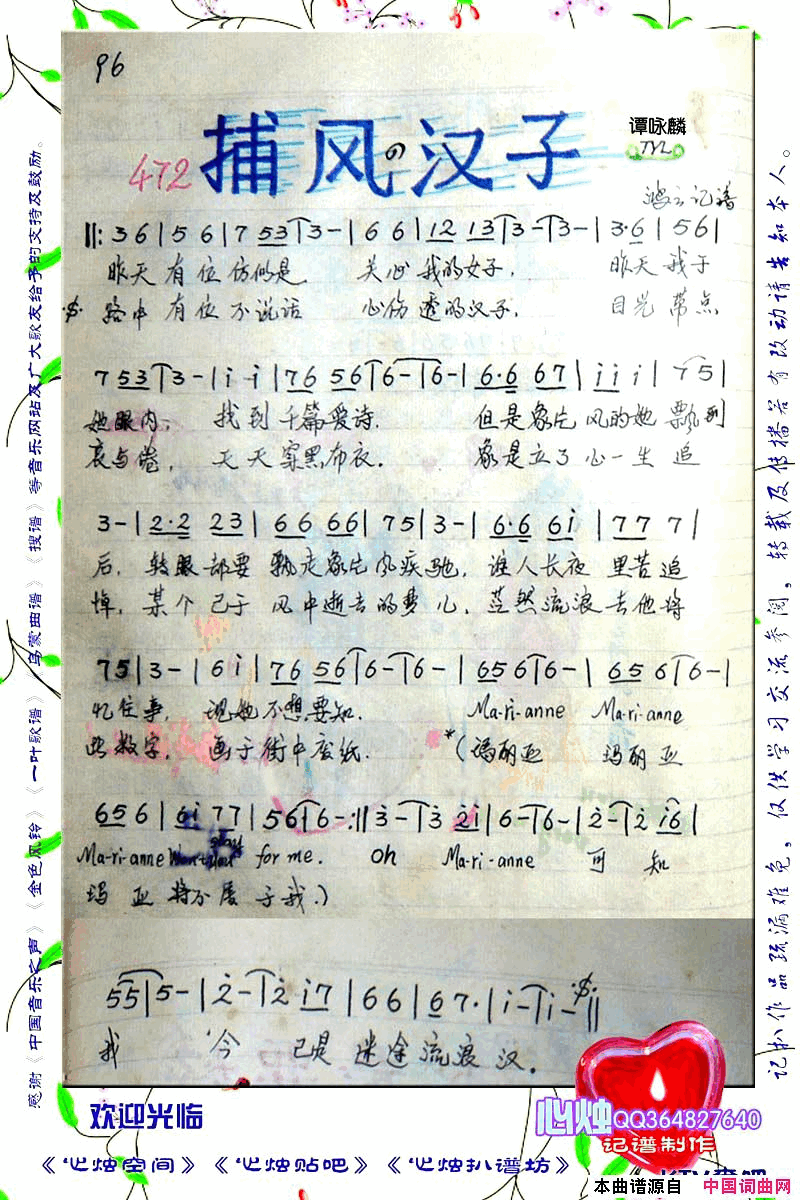 96
捕风の汉子
谭咏麟
472
TYL
鸿云记谱
‖: 3 6 | 5 6 | 7 53 | 3 - | 6 6 | 12 13 | 3 - | 3 - | 3·6 | 5 6 |
昨天有位仿似是 关心我的女子. 昨天我于
路中有位不说话 心伤透的汉子. 目光带点
7 53 | 3 - | i i | 76 56 | 6 - | 6 - | 6·6 67 | i i i | 7 5 |
她眼内, 找到千篇爱诗. 但是象片风的她飘到
哀与倦, 天天穿黑布衣. 象是立了心一生追
3 - | 2·2 23 | 66 66 | 75 | 3 - | 6·6 6i | 77 7 |
后, 转眼却要飘走象片风疾驰, 谁人长夜里苦追
悼, 某个已于风中逝去的梦儿, 茫然流浪去他将
75 | 3 - | 6 i | 76 56 | 6 - | 6 - | 65 6 | 6 - | 65 6 | 6 - |
忆往事, 现她不想要知. Ma-ri-anne Ma-ri-anne
此数字, 画于街中废纸. *(玛丽亚 玛丽亚
65 6 | 6i 77 | 56 | 6 - :‖ 3 - | 3 2i | 6 - | 6 - | 2 - | 2 i6 |
Ma-ri-anne for me. Oh Ma-ri-anne 可 知
玛 亚 将不属于我.)
55 | 5 - | 2 - | 2 i7 | 6 6 | 6 7· | i - | i - ‖
我 今 已是迷途流浪汉.
感谢《中国音乐之声》《金色风铃》《一叶歌谱》《乌蒙曲谱》《搜谱》等音乐网站及广大歌友给予的支持及鼓励。
记扒作品疏漏难免，仅供学习交流参阅，转载及传播若有改动请告知本人。
欢迎光临
心烛QQ364827640
记谱制作
《心烛空间》《心烛贴吧》《心烛扒谱坊》
本曲谱源自 中国词曲网